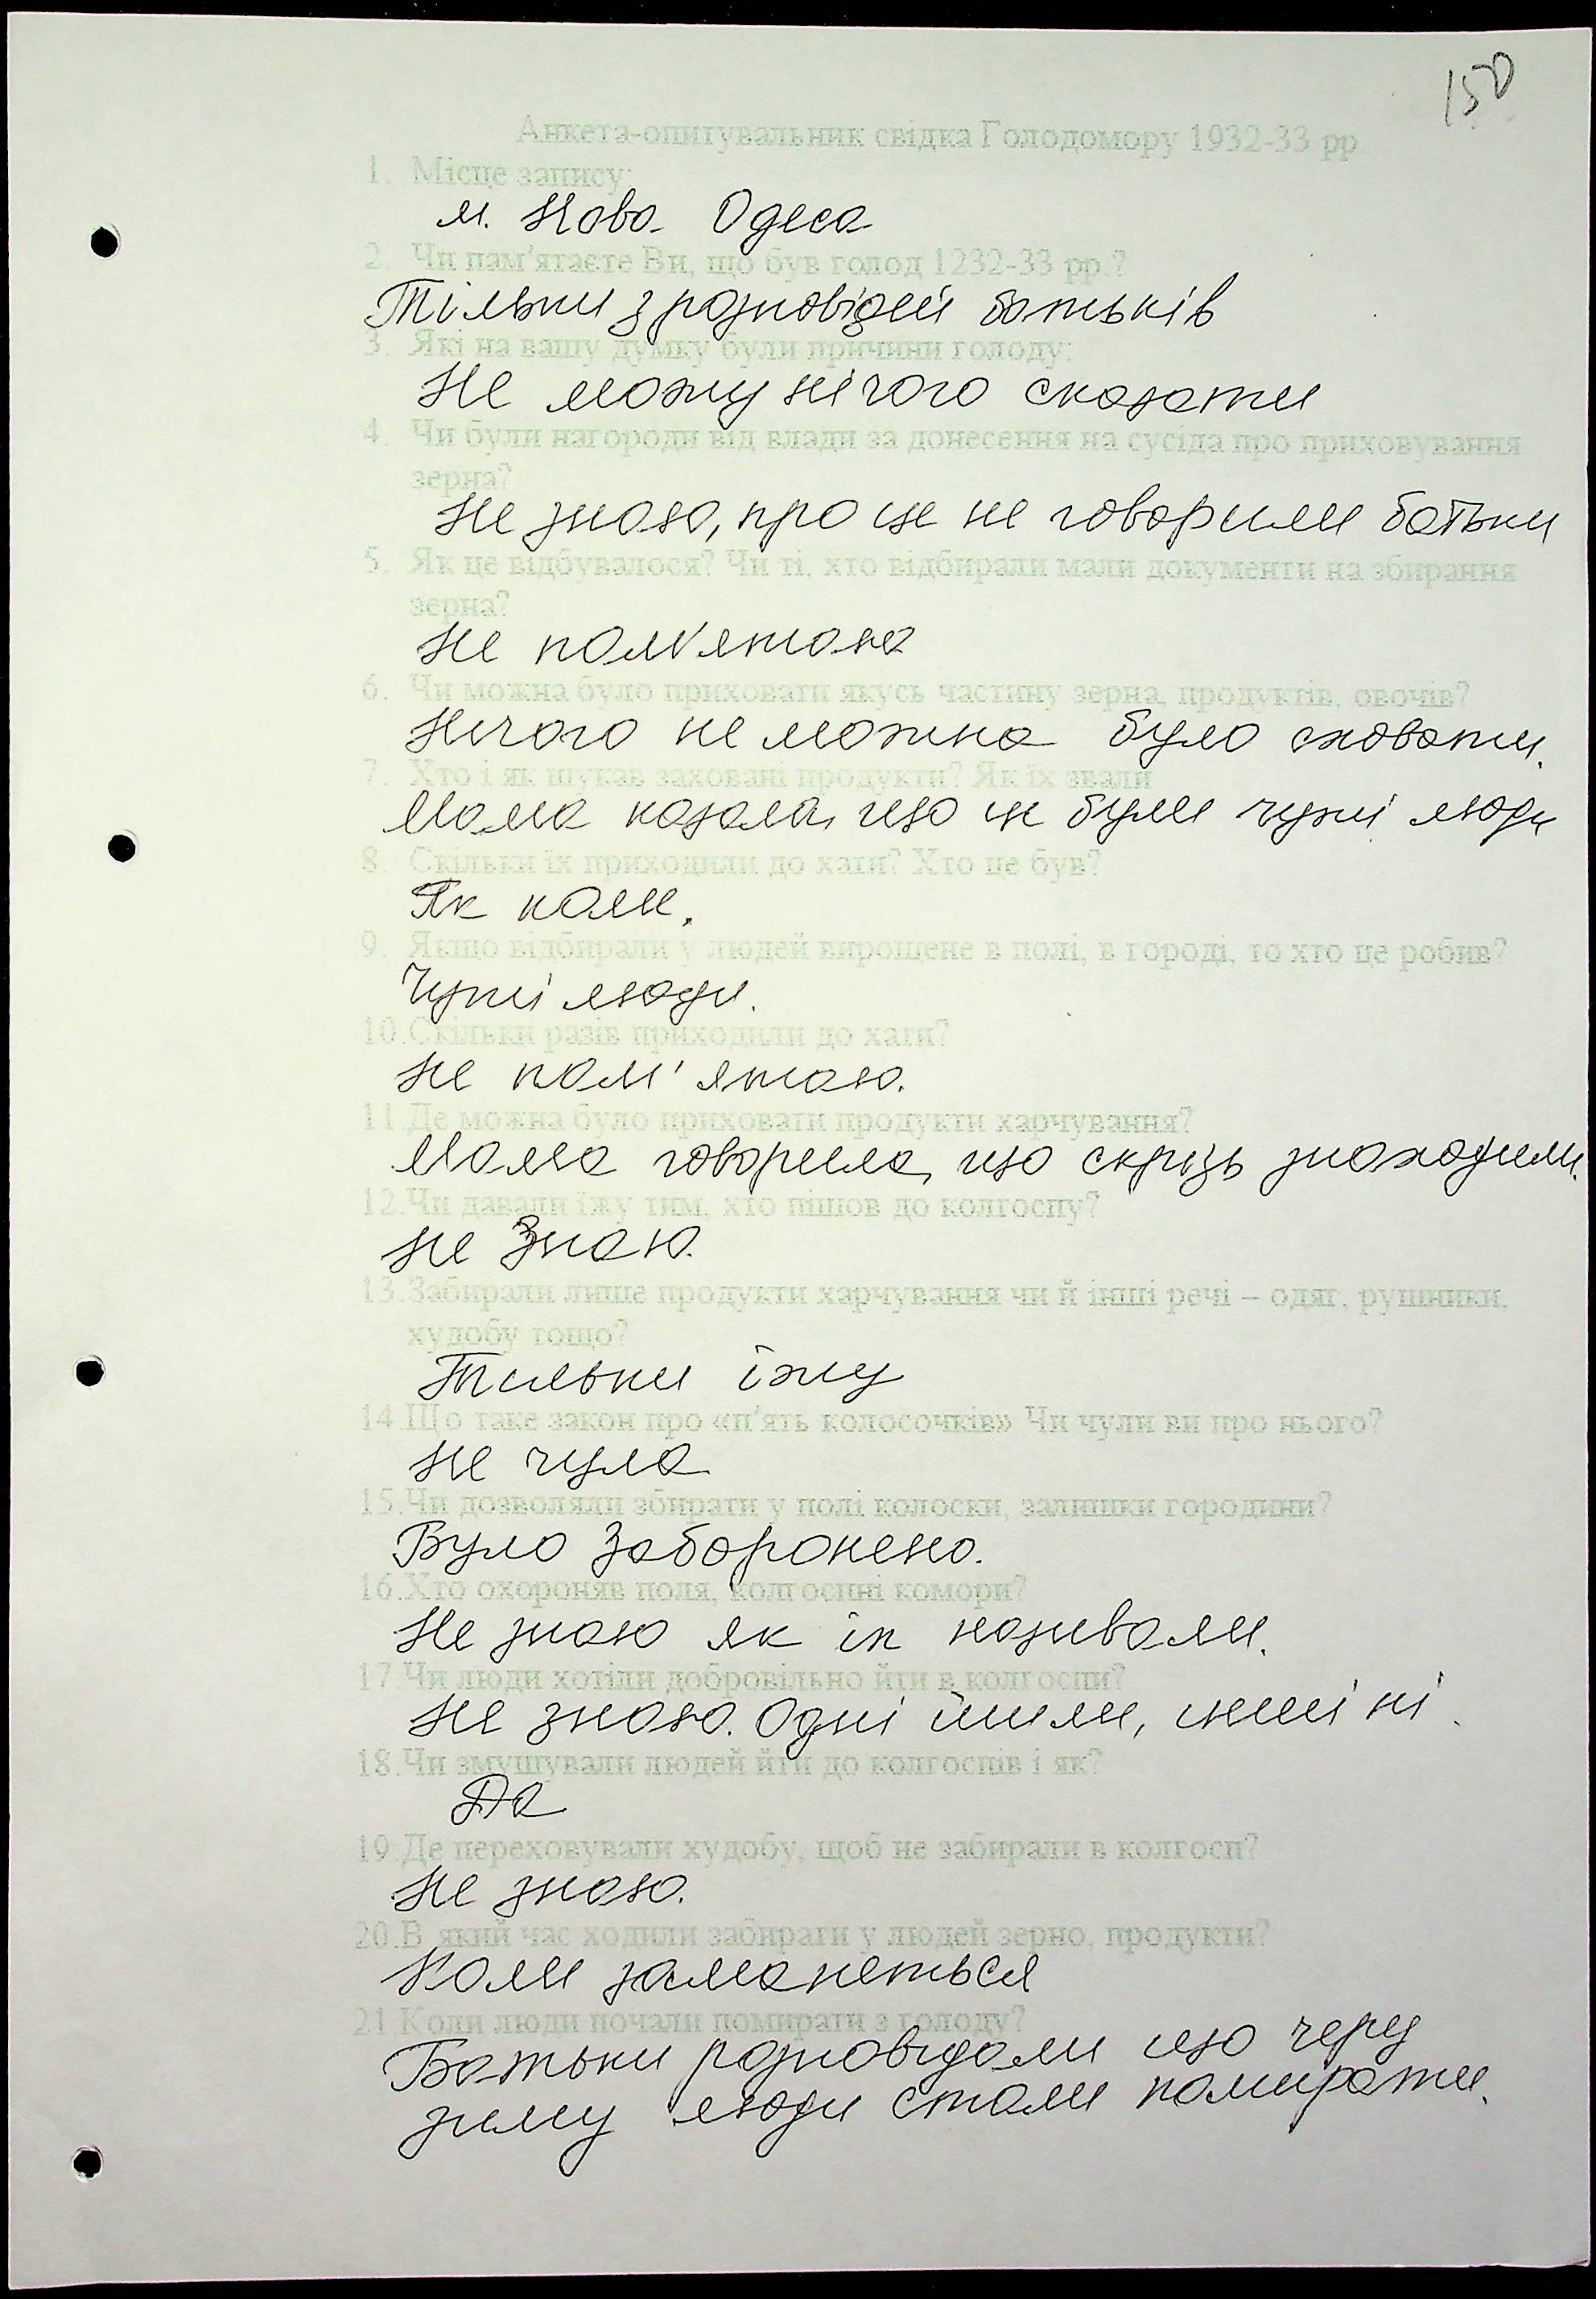 150
Анкета-опитувальник свідка Голодомору 1932-33 рр.
1. Місце запису:
м. Нова Одеса
2. Чи пам'ятаєте Ви, що був голод 1232-33 рр.?
Тільки з розповідей батьків
3. Які на вашу думку були причини голоду:
Не можу нічого сказати
4. Чи були нагороди від влади за донесення на сусіда про приховування
зерна?
Не знаю, про це не говорили батьки
5. Як це відбувалося? Чи ті, хто відбирали мали документи на збирання
зерна?
Не пам'ятаю
6. Чи можна було приховати якусь частину зерна, продуктів, овочів?
Нічого не можна було сховати.
7. Хто і як шукав заховані продукти? Як їх звали
Мама казала, що це були чужі люди
8. Скільки їх приходили до хати? Хто це був?
Як коли.
9. Якщо відбирали у людей вирощене в полі, в городі, то хто це робив?
Чужі люди.
10. Скільки разів приходили до хати?
Не пам'ятаю.
11. Де можна було приховати продукти харчування?
Мама говорила, що скрізь знаходили.
12. Чи давали їжу тим, хто пішов до колгоспу?
Не знаю.
13. Забирали лише продукти харчування чи й інші речі – одяг, рушники,
худобу тощо?
Тільки їжу
14. Що таке закон про «п'ять колосочків» Чи чули ви про нього?
Не чула
15. Чи дозволяли збирати у полі колоски, залишки городини?
Було заборонено.
16. Хто охороняв поля, колгоспні комори?
Не знаю як їх називали.
17. Чи люди хотіли добровільно йти в колгоспи?
Не знаю. Одні йшли, інші ні.
18. Чи змушували людей йти до колгоспів і як?
Да
19. Де переховували худобу, щоб не забирали в колгосп?
Не знаю.
20. В який час ходили забирати у людей зерно, продукти?
Коли заманеться
21. Коли люди почали помирати з голоду?
Батьки розповідали що через
зиму люди стали помирати.